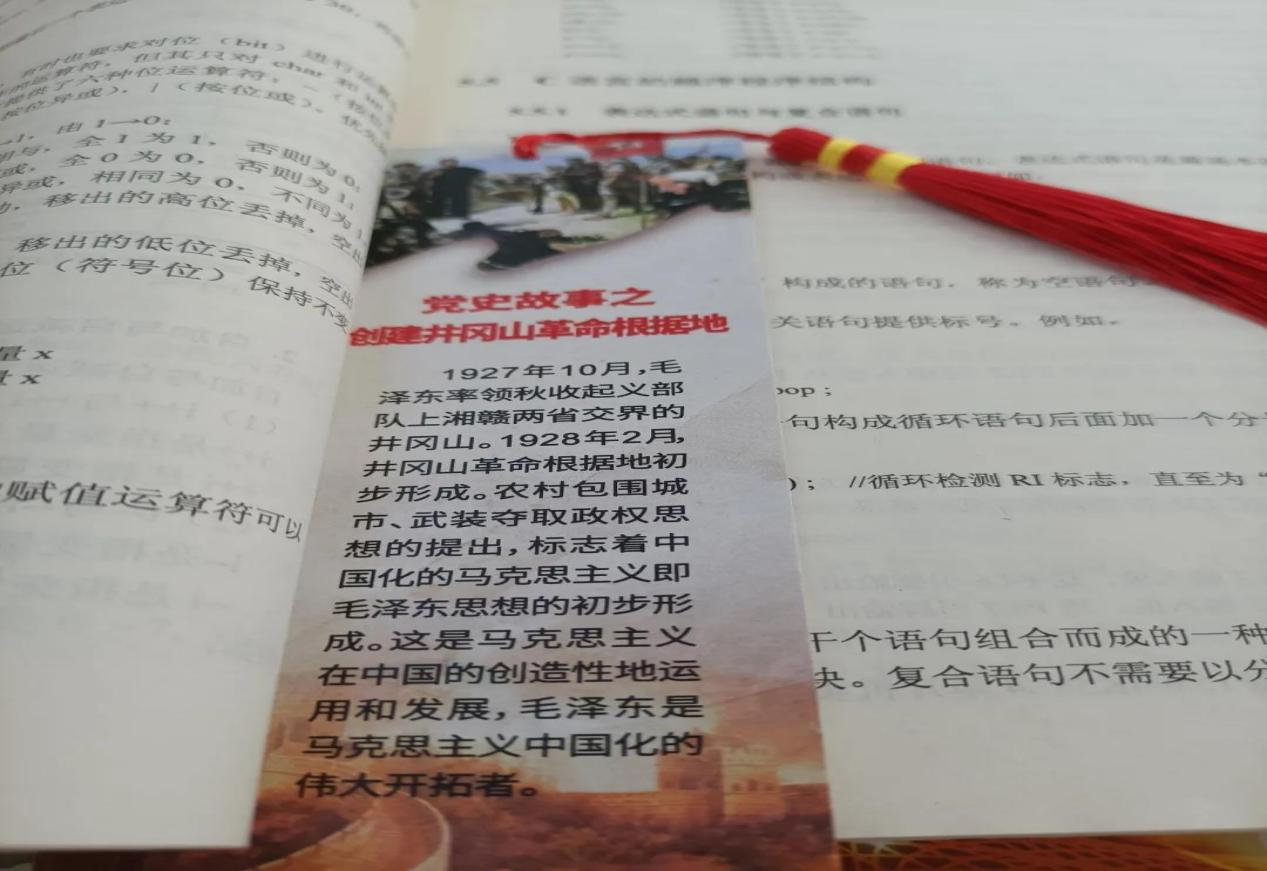 有时也要求对位（bit）进行
运算符，但其只对 char 和 int
提供了六种位运算符，~（按
按位异或），|（按位或）。优先
1，由 1→0；
相与，全 1 为 1，否则为 0；
或，全 0 为 0，否则为 1；
异或，相同为 0，不同为 1
移出的高位丢掉，空出
移出的低位丢掉，空出
位（符号位）保持不变
量 x
量 x
赋值运算符可以
党史故事之
创建井冈山革命根据地
1927年10月，毛
泽东率领秋收起义部
队上湘赣两省交界的
井冈山。1928年2月，
井冈山革命根据地初
步形成。农村包围城
市、武装夺取政权思
想的提出，标志着中
国化的马克思主义即
毛泽东思想的初步形
成。这是马克思主义
在中国的创造性地运
用和发展，毛泽东是
马克思主义中国化的
伟大开拓者。
C 语言的顺序程序结构
表达式语句与复合语句
构成的语句，称为空语句
关语句提供标号。例如，
oop；
句构成循环语句后面加一个分
）； //循环检测 RI 标志，直至为“
干个语句组合而成的一种
块。复合语句不需要以分